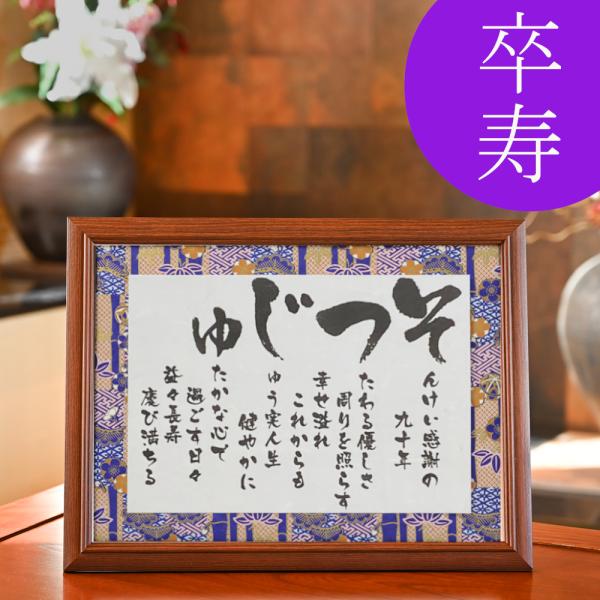 卒寿
そつじゅ
んけい感謝の
九十年
たわる優しさ
周りを照らす
幸せ溢れ
これからも
ゆう実人生
健やかに
たかな心で
過ごす日々
益々長寿
慶び満ちる